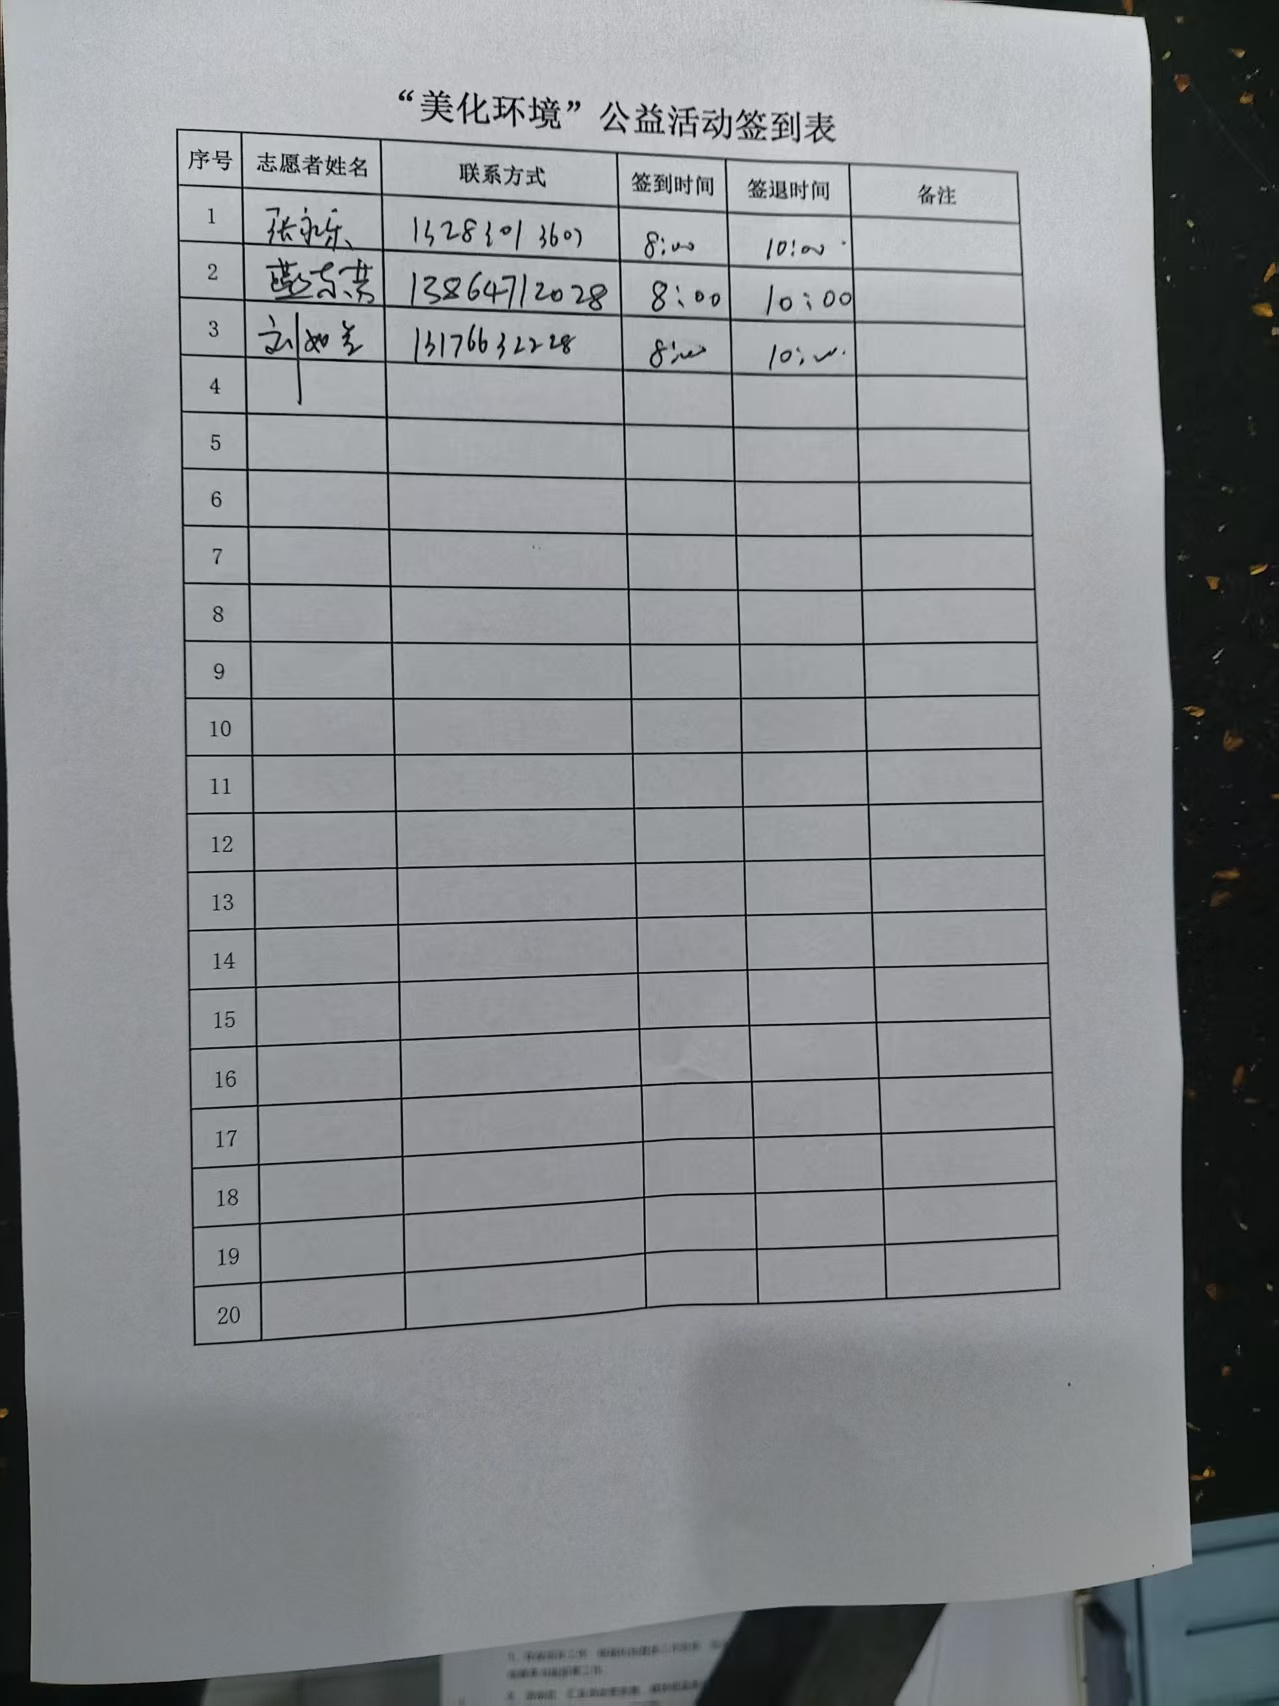 “美化环境”公益活动签到表
序号 志愿者姓名 联系方式 签到时间 签退时间 备注
1 张永乐 13283013607 8:00 10:00
2 13864712028 8:00 10:00
3 刘如 13176632228 8:00 10:00
4
5
6
7
8
9
10
11
12
13
14
15
16
17
18
19
20